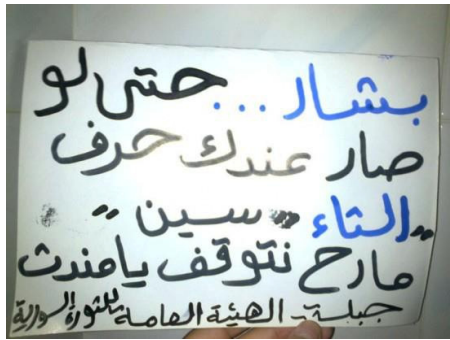 بشار ... حتى لو
صار عندك حرف
"الثاء" سين"
مارح نتوقف يا مندث
جبلة - الهيئة العامة للثورة السورية